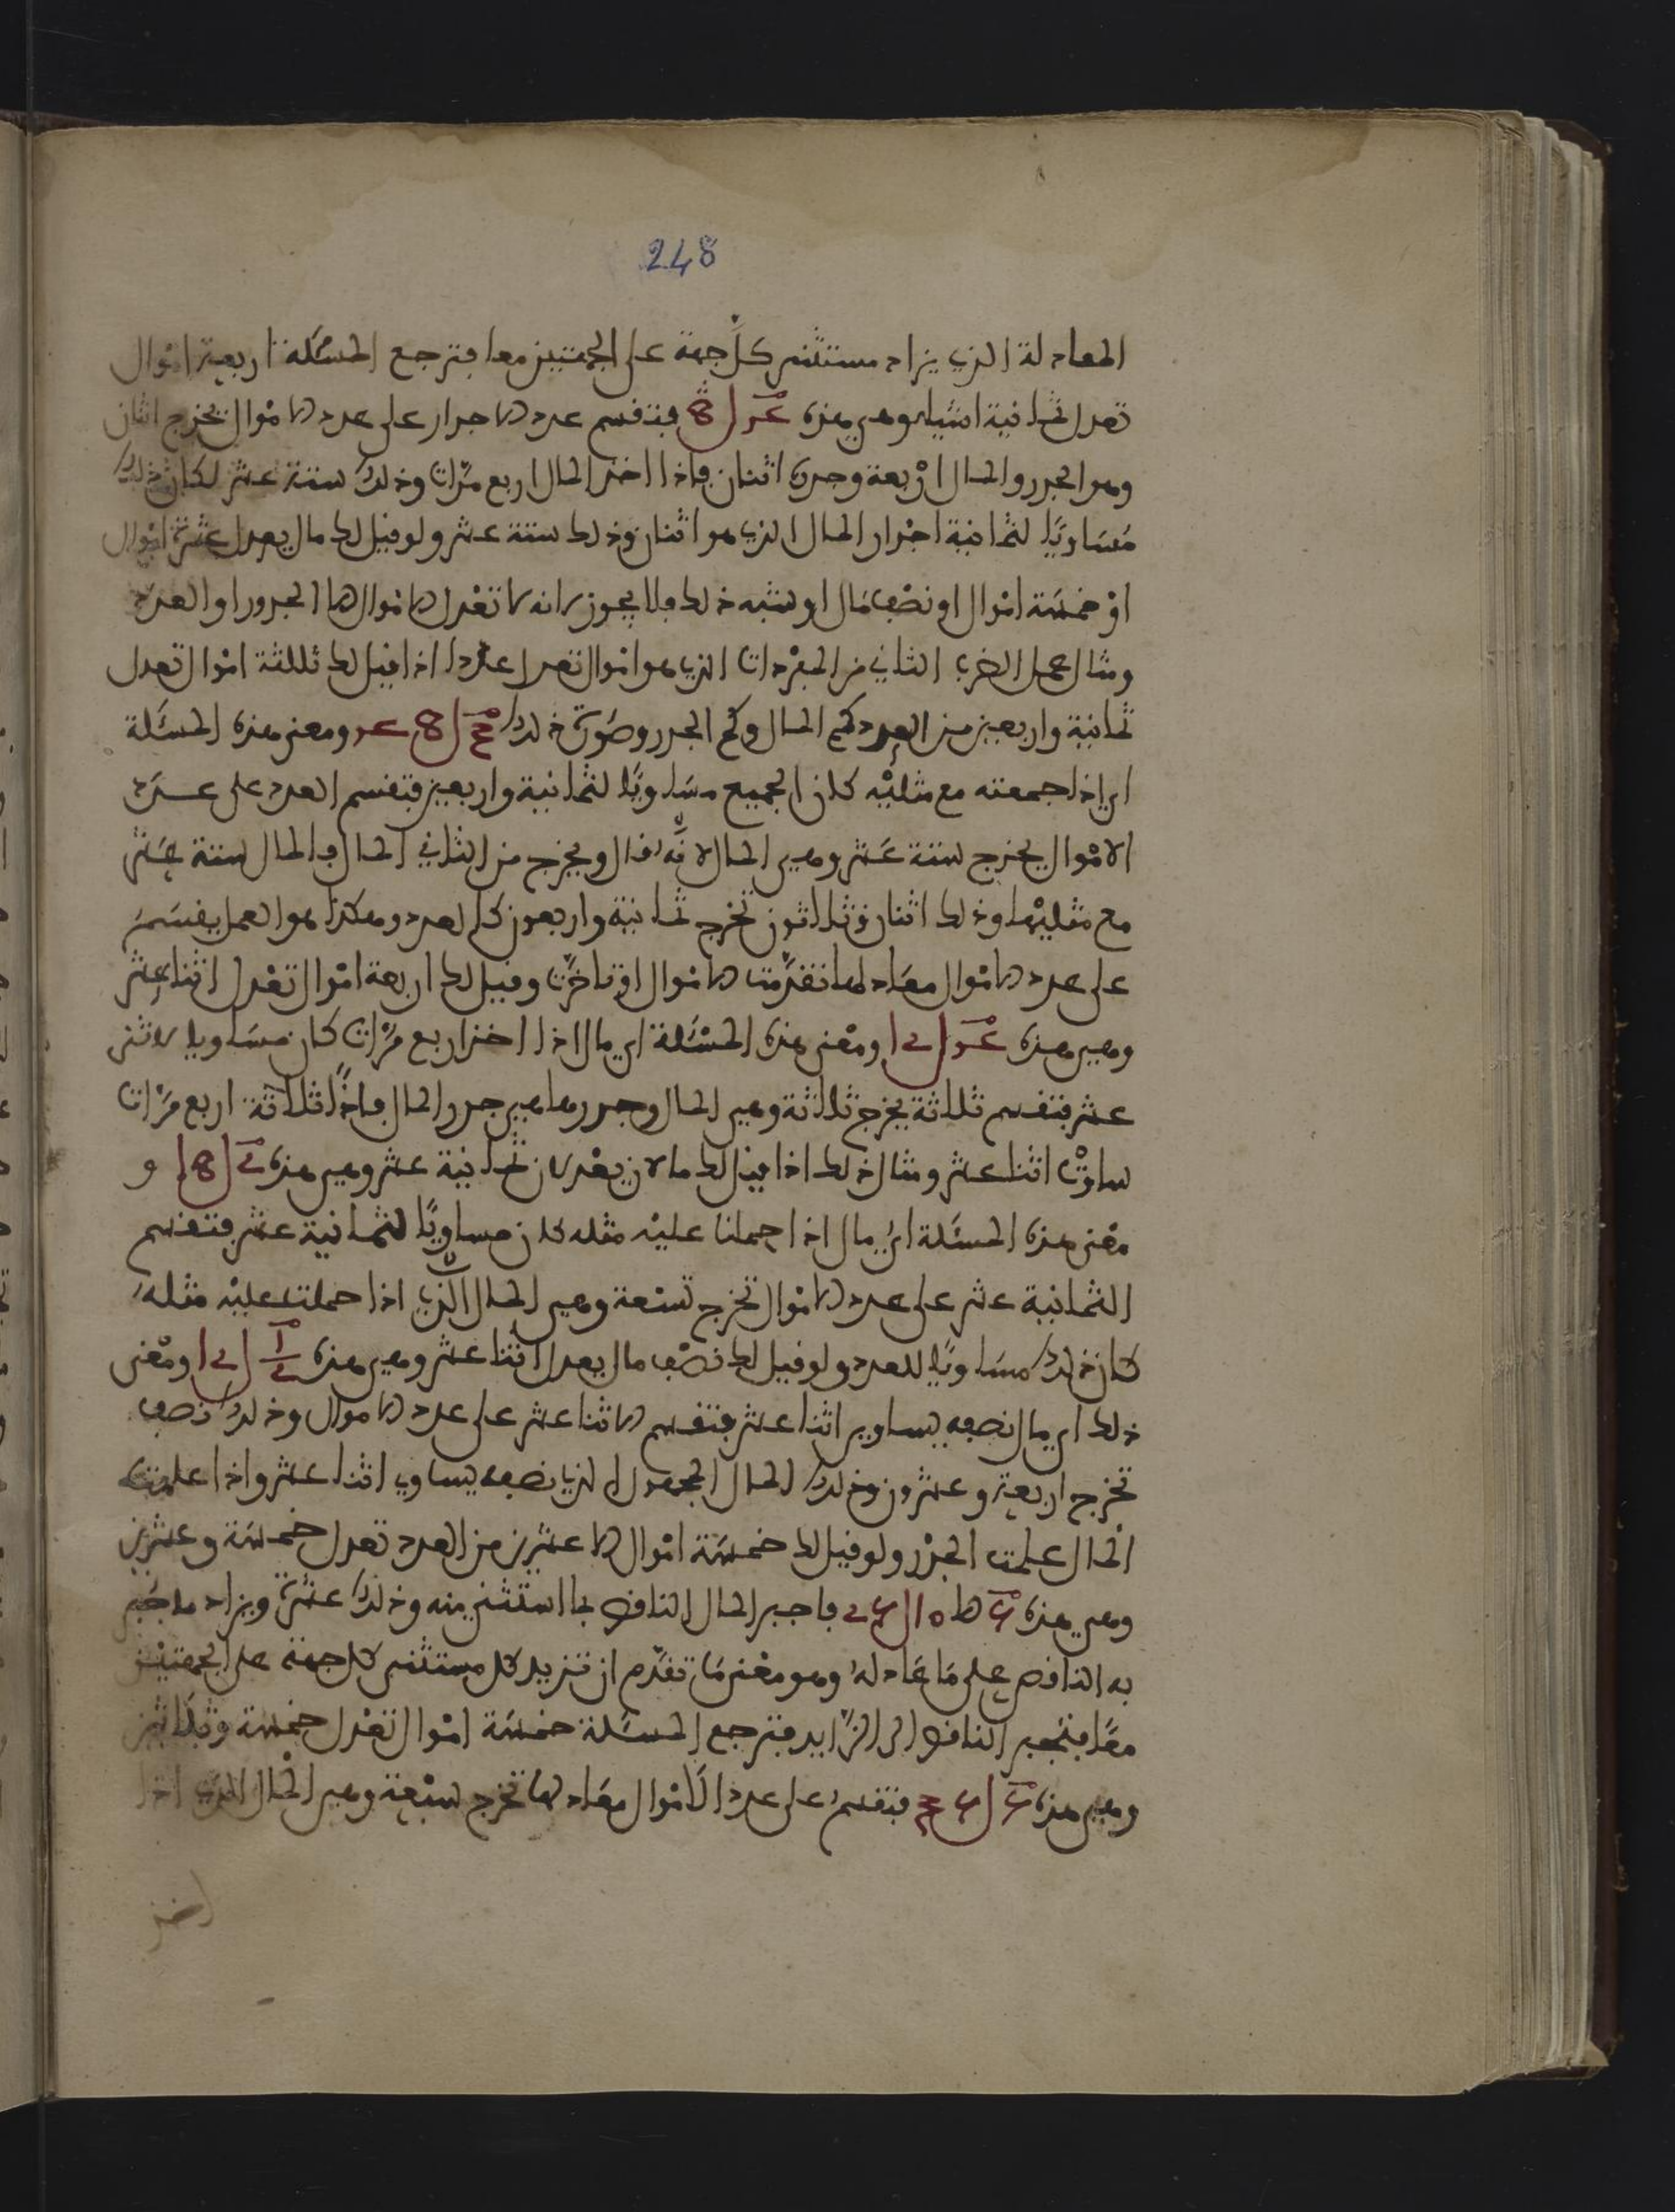 248
المعادلة الذي يزاد مستثنى كلّ جهة على الجهتين معا فترجع المسئلة اربعة اموال
تعدل ثمانية اشياء وهي هذه فتقسم عدد الاجذار على عدد الاموال يخرج اثنان
وهو الجذر والمال اربعة وجذره اثنان فاذا اخذ المال اربع مرّات وذلك ستة عشر لكان ذلك
مساويًا لثمانية اجذار المال الذي هو اثنان وذلك ستة عشر ولو قيل لك مال يعدل عشرة اموال
او خمسة اموال او نصف مال او شبه ذلك فلا يجوز لانه لا تعدل الاموال الا الجذور او العدد
ومثال عمل الضرب الثاني من المفردات الذي هو اموال تعدل عددا اذا قيل لك ثلثة اموال تعدل
ثمانية واربعين من العدد كم المال وكم الجذر وصورة ذلك ومعنى هذه المسئلة
اي اذا جمعته مع مثليْه كان الجميع مساويًا لثمانية واربعين فتقسم العدد على عدد
الاموال يخرج ستة عشر وهي المال لانّه قال ويخرج من الثاني المال فالمال ستة عشر
مع مثليْها وذلك اثنان وثلاثون تخرج ثمانية واربعون كالعدد وهكذا هو العمل يقسم
على عدد الاموال معادلها تقدّمت الاموال او تاخرّت وقيل لك اربعة اموال تعدل اثنا عشر
وهي هذه ومعنى هذه المسئلة اي مال اذا اخذ اربع مرّات كان مساويا لاثنى
عشر فتقسم ثلاثة يخرج ثلاثة وهي المال وجذرها هي جذر المال فاذًا ثلاثة اربع مرّات
ساوتْ اثنا عشر ومثال ذلك اذا قيل لك مالان يعدلان ثمانية عشر وهي هذه و
معنى هذه المسئلة ايّ مال اذا حملنا عليْه مثله كان مساويًا لثمانية عشر فتقسم
الثمانية عشر على عدد الاموال تخرج تسْعة وهي المال الذي اذا حملت عليْه مثلهُ
كان ذلك مساويًا للعدد ولو قيل لك نصْف مال يعدل اثنا عشر وهي هذه ومعْنى
ذلك اي مال نصفه يساوي اثنا عشر فتقسم الاثنا عشر على عدد الاموال وذلك نصف
تخرج اربعة وعشرون وذلك المال المجهول الذي نصفه يساوي اثنا عشر واذا علمت
المال علمت الجذْر ولو قيل لك خمسة اموال الا عشرين من العدد تعدل خمسة وعشرين
وهي هذه فاجبر المال الناقص بما استثني منه وذلك عشرة ويزاد ما جبر
به الناقص على مَا عَادلهُ وهو معْنى مَا تقدّم ان تزيد كل مستثنى كل جهة على الجهتيْن
معًا فتجبر الناقص الى الزّايد فترجع المسئلة خمسة اموال تعْدل خمسة وثلاثين
وهي هذه فتقسمُ على عدد الاموال معادلها تخرج سبْعة وهي المال الذي اذا
اخذ